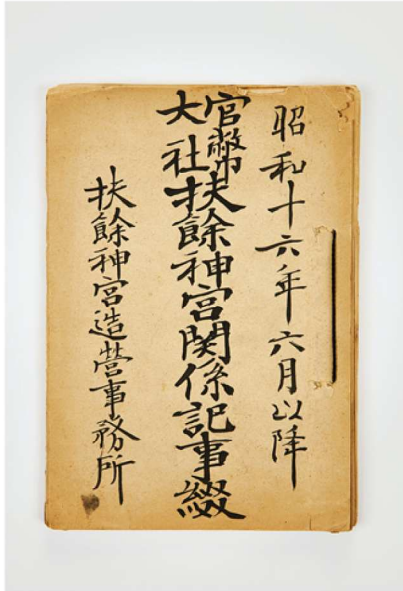 昭和十六年六月以降
官幣大社扶餘神宮関係記事綴
扶餘神宮造営事務所